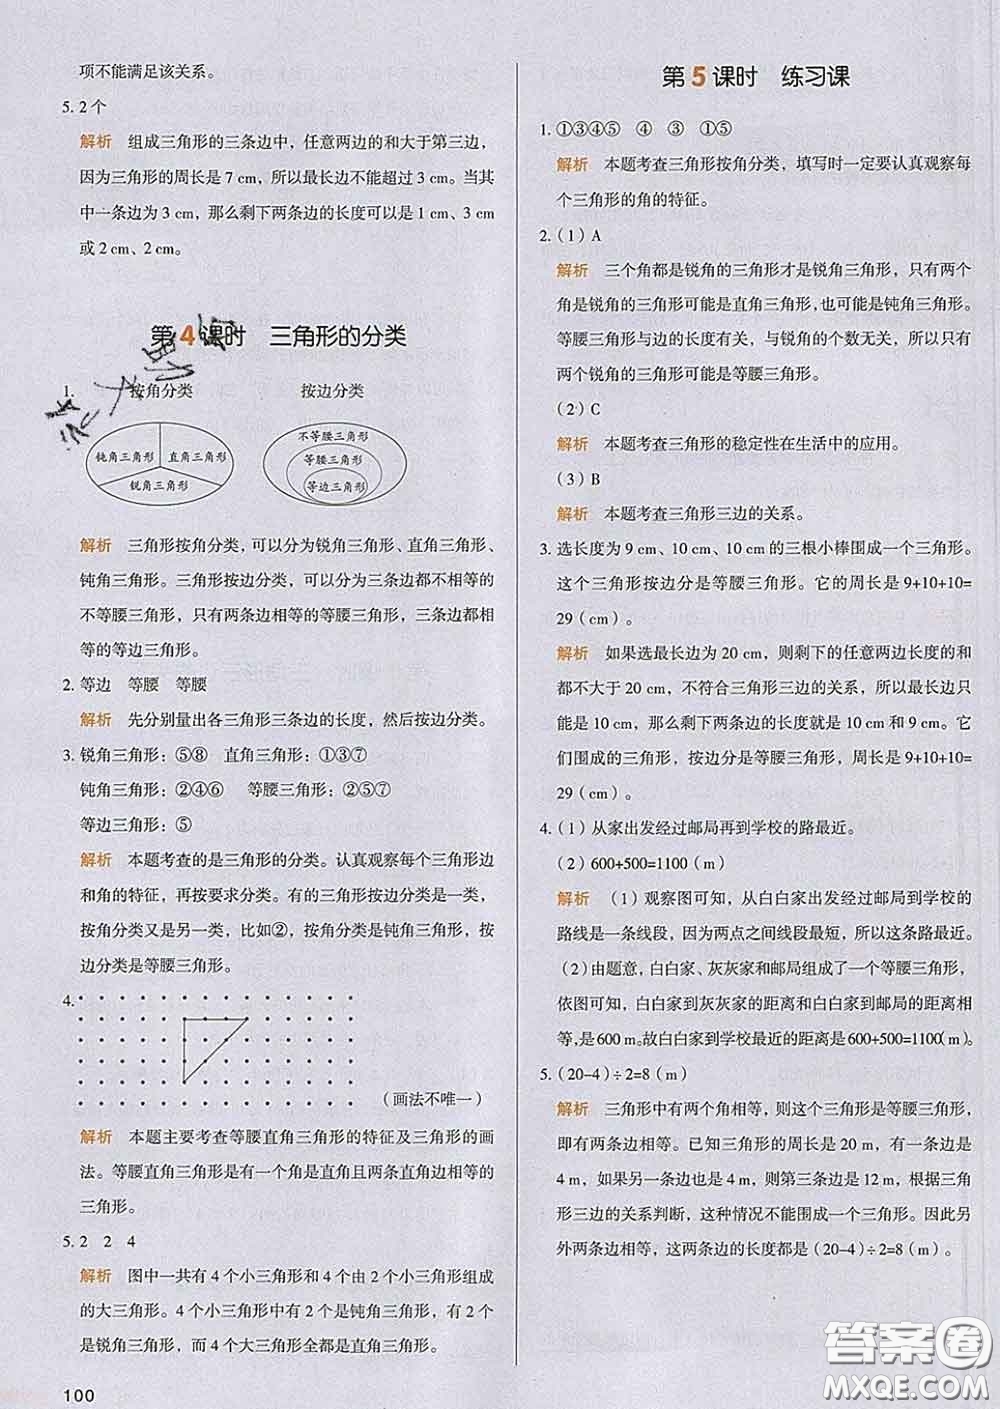 项不能满足该关系。
5. 2 个
解析 组成三角形的三条边中，任意两边的和大于第三边，
因为三角形的周长是 7 cm，所以最长边不能超过 3 cm。当其
中一条边为 3 cm，那么剩下两条边的长度可以是 1 cm、3 cm
或 2 cm、2 cm。
第 4 课时 三角形的分类
1. 按角分类 按边分类
钝角三角形 直角三角形
锐角三角形
不等腰三角形
等腰三角形
等边三角形
解析 三角形按角分类，可以分为锐角三角形、直角三角形、
钝角三角形。三角形按边分类，可分为三条边都不相等的
不等腰三角形，只有两条边相等的等腰三角形，三条边都相
等的等边三角形。
2. 等边 等腰 等腰
解析 先分别量出各三角形三条边的长度，然后按边分类。
3. 锐角三角形：⑤⑧ 直角三角形：①③⑦
钝角三角形：②④⑥ 等腰三角形：②⑤⑦
等边三角形：⑤
解析 本题考查的是三角形的分类。认真观察每个三角形边
和角的特征，再按要求分类。有的三角形按边分类是一类，
按角分类又是另一类，比如②，按角分类是钝角三角形，按
边分类是等腰三角形。
4.
（画法不唯一）
解析 本题主要考查等腰直角三角形的特征及三角形的画
法。等腰直角三角形是有一个角是直角且两条直角边相等的
三角形。
5. 2 2 4
解析 图中一共有 4 个小三角形和 4 个由 2 个小三角形组成
的大三角形。4 个小三角形中有 2 个是钝角三角形，有 2 个
是锐角三角形，而 4 个大三角形全都是直角三角形。
100
第 5 课时 练习课
1. ①③④⑤ ④ ③ ①⑤
解析 本题考查三角形按角分类，填写时一定要认真观察每
个三角形的角的特征。
2.（1）A
解析 三个角都是锐角的三角形才是锐角三角形，只有两个
角是锐角的三角形可能是直角三角形，也可能是钝角三角形。
等腰三角形与边的长度有关，与锐角的个数无关，所以只有
两个锐角的三角形可能是等腰三角形。
（2）C
解析 本题考查三角形的稳定性在生活中的应用。
（3）B
解析 本题考查三角形三边的关系。
3. 选长度为 9 cm、10 cm、10 cm 的三根小棒围成一个三角形。
这个三角形按边分是等腰三角形。它的周长是 9+10+10=
29（cm）。
解析 如果选最长边为 20 cm，则剩下的任意两边长度的和
都不大于 20 cm，不符合三角形三边的关系，所以最长边只
能是 10 cm，那么剩下两条边的长度就是 10 cm 和 9 cm。它
们围成的三角形，按边分是等腰三角形，周长是 9+10+10=
29（cm）。
4.（1）从家出发经过邮局再到学校的路最近。
（2）600+500=1100（m）
解析 （1）观察图可知，从白白家出发经过邮局到学校的
路线是一条线段，因为两点之间线段最短，所以这条路最近。
（2）由题意，白白家、灰灰家和邮局组成了一个等腰三角形，
依图可知，白白家到灰灰家的距离和白白家到邮局的距离相
等，是 600 m。故白白家到学校最近的距离是 600+500=1100（m）。
5.（20-4）÷2=8（m）
解析 三角形中有两个角相等，则这个三角形是等腰三角形，
即有两条边相等。已知三角形的周长是 20 m，有一条边是
4 m，如果另一条边也是 4 m，则第三条边是 12 m，根据三角
形三边的关系判断，这种情况不能围成一个三角形。因此另
外两条边相等，这两条边的长度都是（20-4）÷2=8（m）
答案圈
MXQE.COM